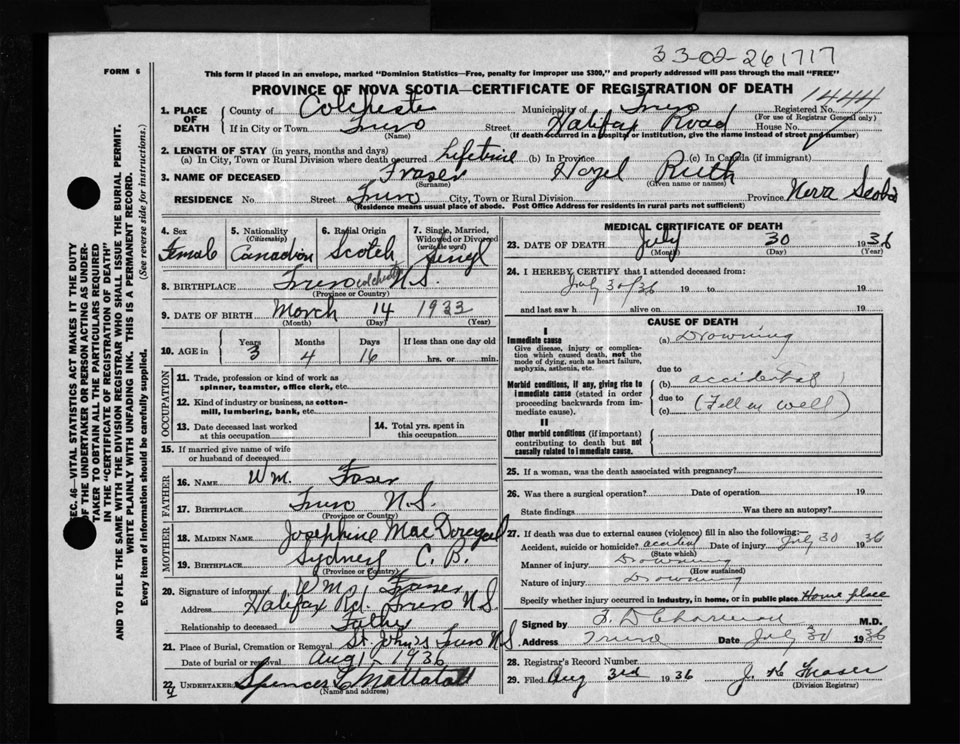 33-02-261717
FORM 6
This form if placed in an envelope, marked "Dominion Statistics—Free, penalty for improper use $300," and properly addressed will pass through the mail "FREE"
PROVINCE OF NOVA SCOTIA—CERTIFICATE OF REGISTRATION OF DEATH
1. PLACE OF DEATH County of Colchester Municipality of Truro Registered No. 1444
(For use of Registrar General only)
If in City or Town Truro Street Halifax Road House No.
(Name) (If death occurred in a hospital or institution, give the name instead of street and number)
2. LENGTH OF STAY (in years, months and days)
(a) In City, Town or Rural Division where death occurred Lifetime (b) In Province (c) In Canada (if immigrant)
3. NAME OF DECEASED Fraser Hazel Ruth
(Surname) (Given name or names)
RESIDENCE No. Street Truro City, Town or Rural Division Province Nova Scotia
(Residence means usual place of abode. Post Office Address for residents in rural parts not sufficient)
4. Sex 5. Nationality 6. Racial Origin 7. Single, Married, Widowed or Divorced
(Citizenship) (write the word)
Female Canadian Scotch
8. BIRTHPLACE Truro Colchester N.S.
(Province or Country)
9. DATE OF BIRTH March 14 1933
(Month) (Day) (Year)
10. AGE in Years Months Days If less than one day old
3 4 16 hrs. or min.
OCCUPATION
11. Trade, profession or kind of work as spinner, teamster, office clerk, etc.
12. Kind of industry or business, as cotton-mill, lumbering, bank, etc.
13. Date deceased last worked at this occupation
14. Total yrs. spent in this occupation
15. If married give name of wife or husband of deceased
FATHER
16. NAME Wm. Faser
17. BIRTHPLACE Truro N.S.
(Province or Country)
MOTHER
18. MAIDEN NAME Josephine
19. BIRTHPLACE Sydney C. B.
(Province or Country)
20. Signature of informant Wm. Fraser
Address Halifax Rd. Truro N.S.
Relationship to deceased Father
21. Place of Burial, Cremation or Removal St. John's Truro N.S.
Date of burial or removal Aug 1 - 1936
22. UNDERTAKER Spencer
(Name and address)
MEDICAL CERTIFICATE OF DEATH
23. DATE OF DEATH July 30 1936
(Month) (Day) (Year)
24. I HEREBY CERTIFY that I attended deceased from:
July 30/36 19 to 19
and last saw h alive on 19
CAUSE OF DEATH
I
Immediate cause
Give disease, injury or complication which caused death, not the mode of dying, such as heart failure, asphyxia, asthenia, etc.
(a) Drowning
due to
Morbid conditions, if any, giving rise to immediate cause (stated in order proceeding backwards from immediate cause).
(b) accidental
due to
(c) (Fell in well)
II
Other morbid conditions (if important) contributing to death but not causally related to immediate cause.
25. If a woman, was the death associated with pregnancy?
26. Was there a surgical operation? Date of operation 19
State findings Was there an autopsy?
27. If death was due to external causes (violence) fill in also the following:
Accident, suicide or homicide? accident Date of injury July 30 1936
(State which)
Manner of injury Drowning
(How sustained)
Nature of injury Drowning
Specify whether injury occurred in industry, in home, or in public place Home place
Signed by M.D.
Address Truro Date July 30 1936
28. Registrar's Record Number
29. Filed Aug 3rd 1936 J. H. Fraser
(Division Registrar)
SEC. 46—VITAL STATISTICS ACT MAKES IT THE DUTY
OF THE UNDERTAKER OR PERSON ACTING AS UNDERTAKER TO OBTAIN ALL THE PARTICULARS REQUIRED
IN THE "CERTIFICATE OF REGISTRATION OF DEATH"
AND TO FILE THE SAME WITH THE DIVISION REGISTRAR WHO SHALL ISSUE THE BURIAL PERMIT.
WRITE PLAINLY WITH UNFADING INK. THIS IS A PERMANENT RECORD.
Every item of information should be carefully supplied. (See reverse side for instructions.)